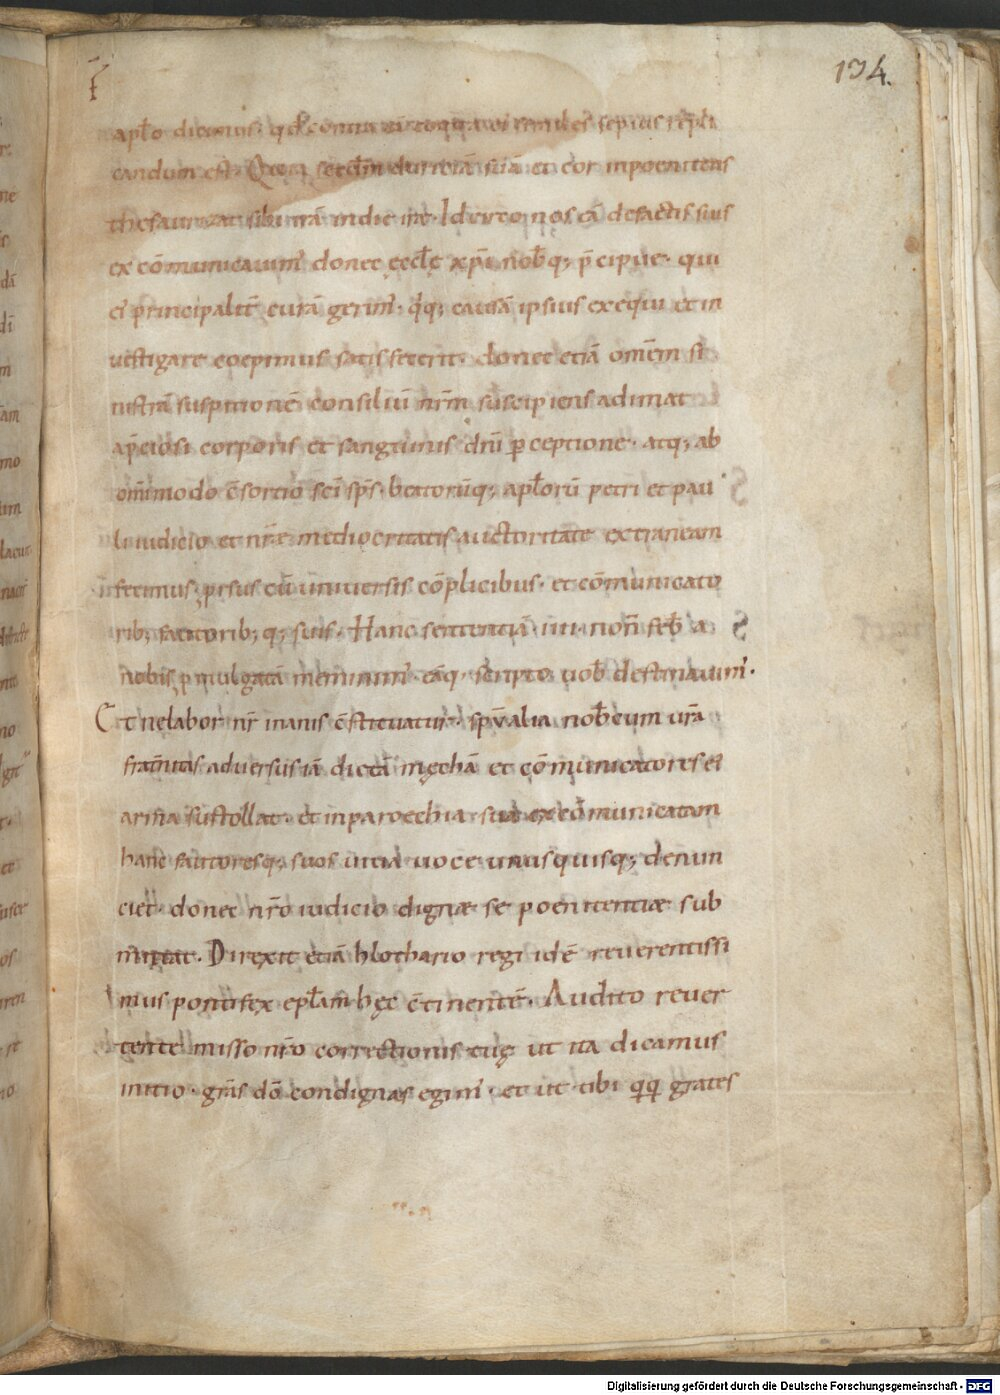 134.
apło dicimus. qđ contra ei similes sepius repli
candum est. scđm duritiā suā et cor inpoenitens
thesaurizat sibi irā in die irę. Idcirco nos eā de factis suis
excōmunicauim' donec ęccłę xp̄i nob̄q; p̄cipue. qui
ei principalit̄ curā gerim'. q; causā ipsius exequi et in
uestigare coepimus satisfecerit. donec etiā omēm si
nistrā suspitionē consiliū nr̄m suscipiens adimat
a p̄ciosi corporis et sanguinis dn̄i p̄ceptione. atq; ab
om̄imodo c̄sortio sc̄i sp̄s. beatorūq; apłorū petri et pau
li iudicio et nr̄ae mediocritatis auctoritate extraneam
fecimus, prsus cū uniuersis cōplicibus. et cōmunicato
rib; fautorib;q; suis. Hanc sententiā. iiii. non̄ feb̄ a
nobis p̄mulgatā meminim'. eāq. scripto uob̄ destinauim'.
Et ne labor nr̄ inanis c̄stituatur. sp̄ualia nob̄cum ur̄a
frat̄nitas aduersus iā dictā męchā et cōmunicatores ei
arma sustollat. et in parocchia sua excōmunicatam
hanc fautoresq; suos uiua uoce unusquisq; denun
ciet. donec nr̄o iudicio dignae se poenitentiae sub
mittat. Direxit etiā hlothario regi idē reuerentissi
mus pontifex epłam hęc c̄tinentē. Audito reuer
tente misso nr̄o correctionis tuę ut ita dicamus
initio. grās dō condignas egim'. et ut tibi qq grates
Digitalisierung gefördert durch die Deutsche Forschungsgemeinschaft - DFG